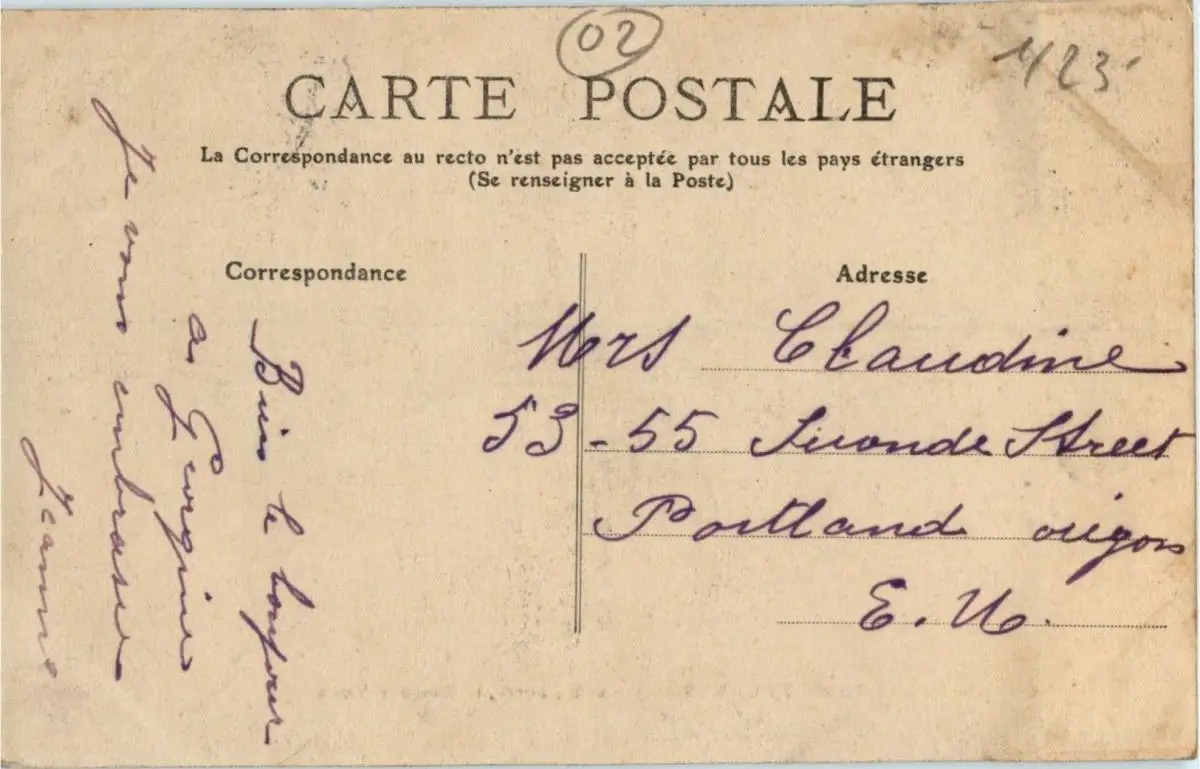 02
1/23
CARTE POSTALE
La Correspondance au recto n'est pas acceptée par tous les pays étrangers
(Se renseigner à la Poste)
Correspondance
Adresse
Bien le bonjour
a Georgine
Je vous embrasse
Jeanne
Mrs Claudine
53-55 Seconde Street
Portland origon
E. U.